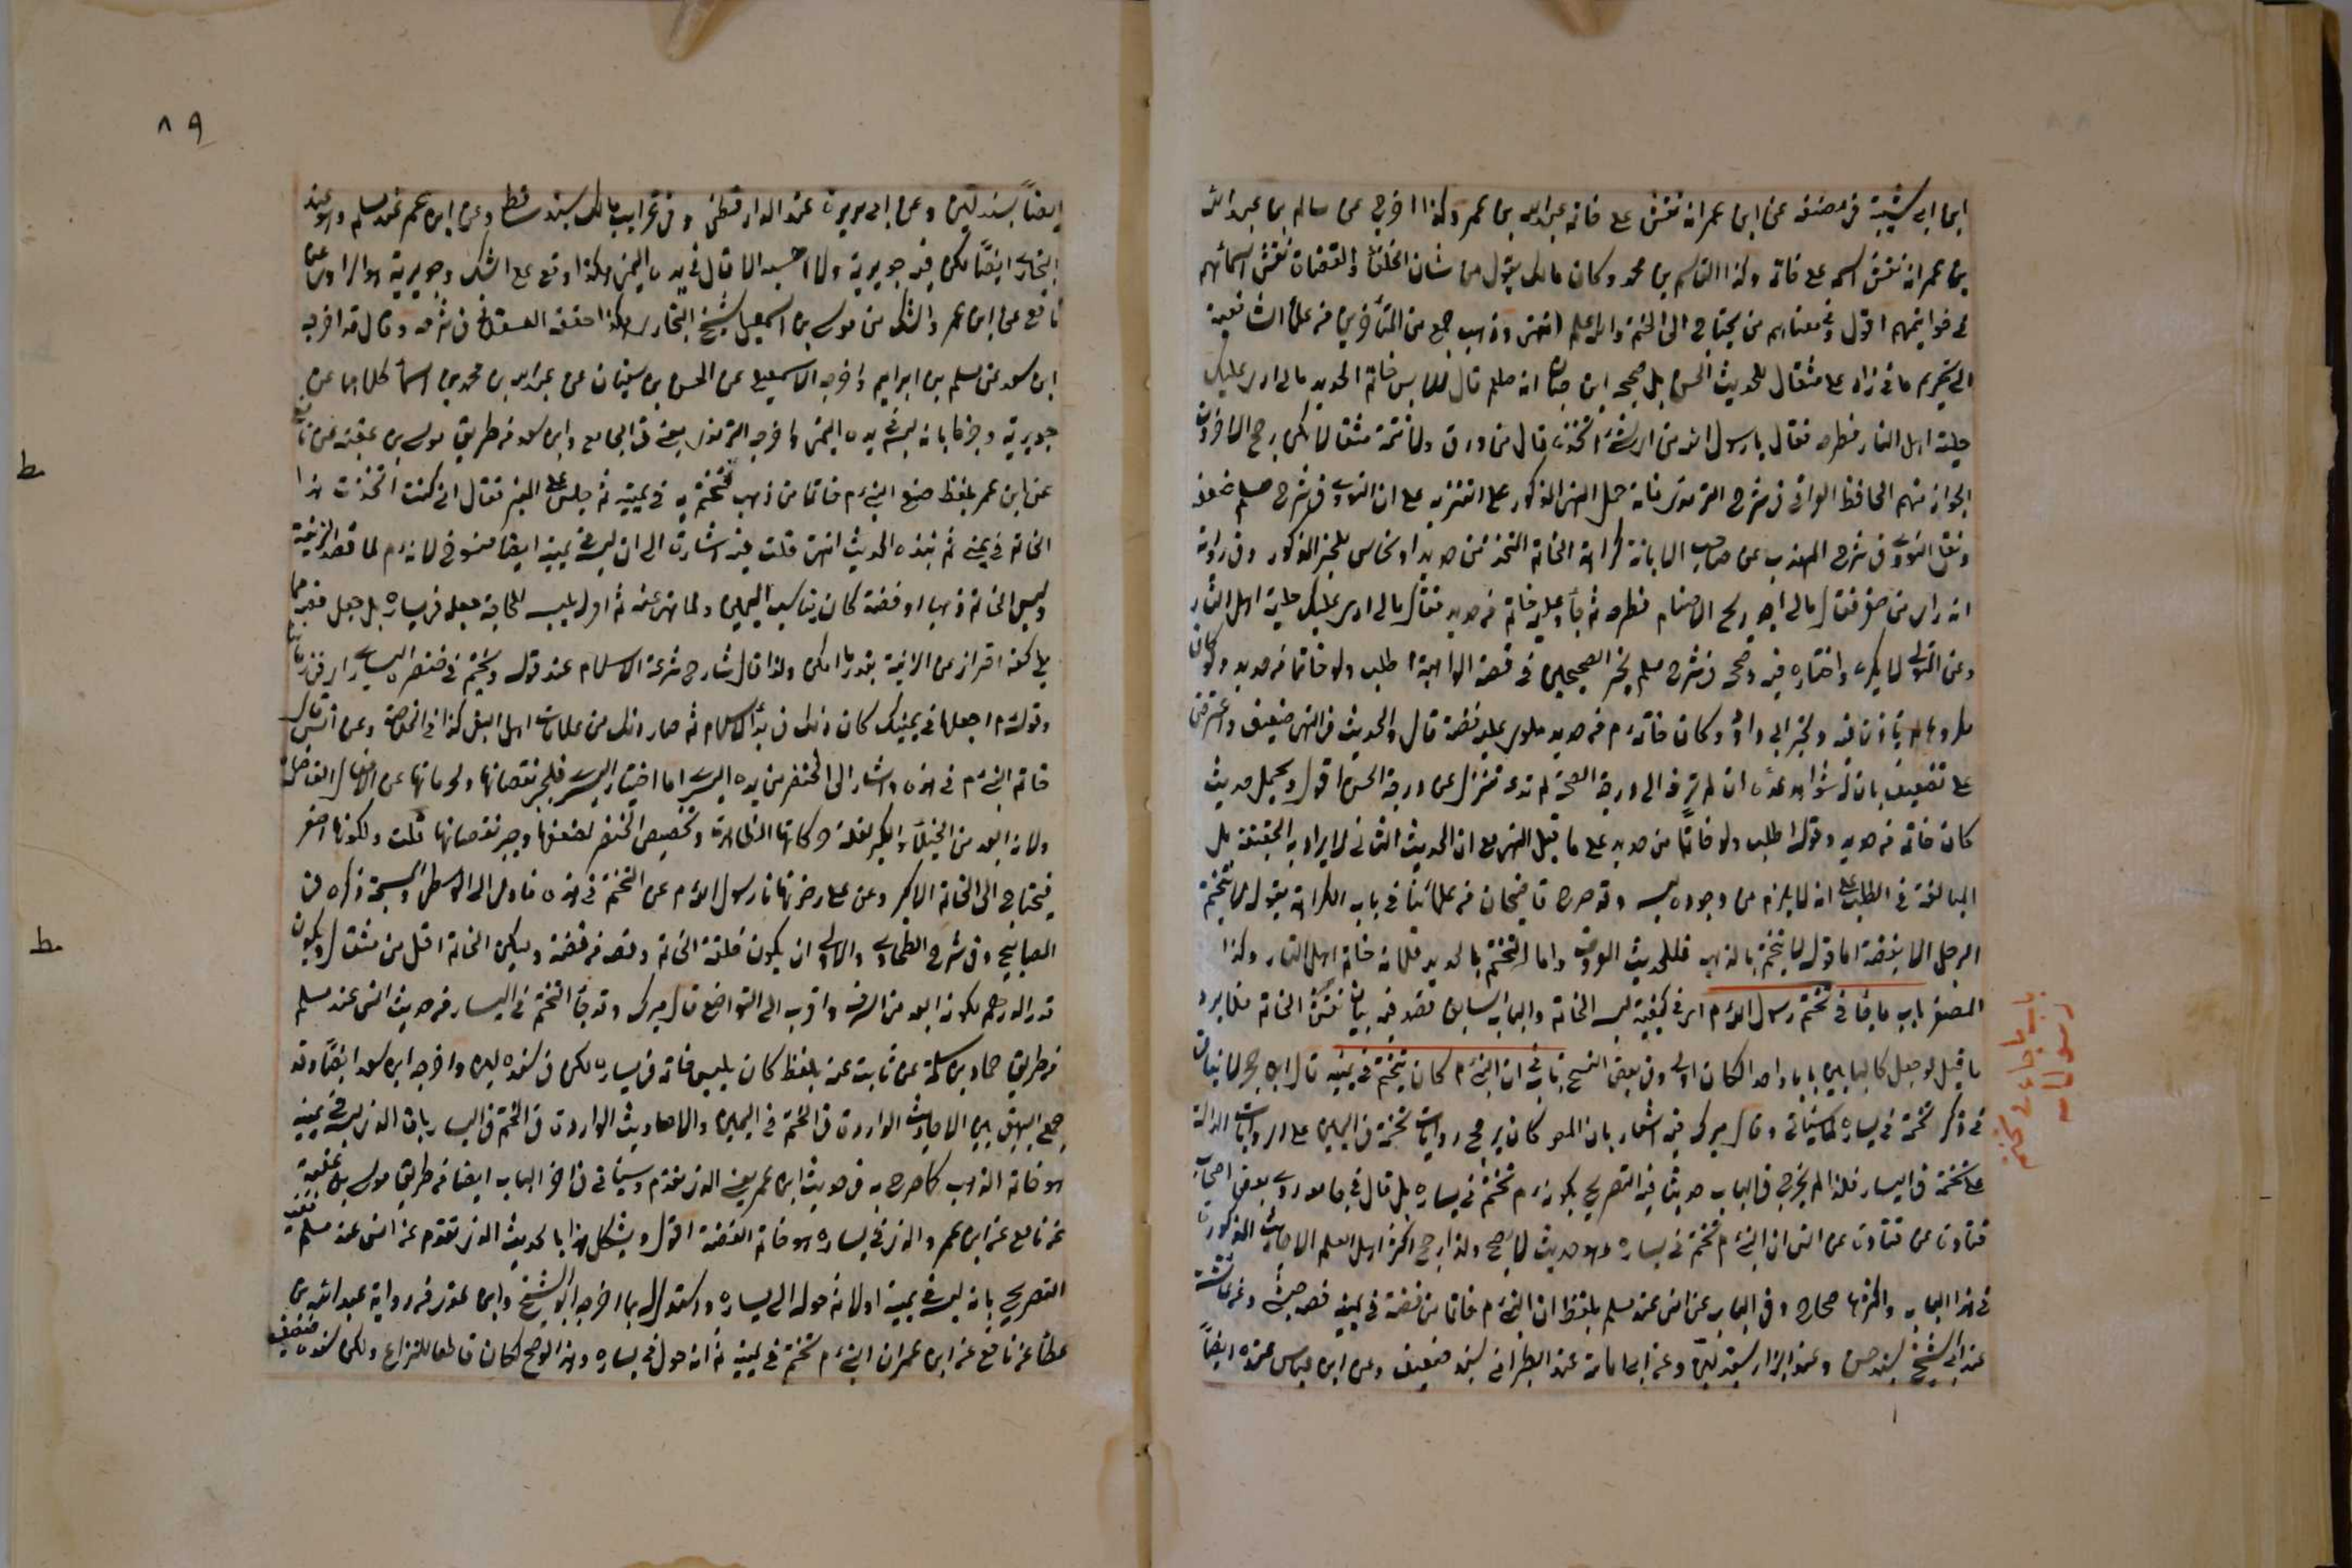 ابن ابي شيبة في مصنفه عن ابن عمر انه نقش على خاتمه عبد الله بن عمر وكذا اخرج عن سالم بن عبد الله
بن عمر انه نقش اسمه على خاتمه وكذا القاسم بن محمد وكان مالك يقول من شان الخلفاء والقضاة نقش اسمائهم
في خواتيمهم اقول وفي معناهم من يحتاج الى الختم والله اعلم انتهى وذهب جمع من المتأخرين من علماء الشافعية
الى تحريم ما زاد على مثقال للحديث الحسن بل صححه ابن حبان انه صلعم قال للابس خاتم الحديد مالي ارى عليك
حلية اهل النار فطرحه فقال يا رسول الله من اي شئ اتخذه قال من ورق ولا تتمه مثقالا لكن رجح الاخرون
الجواز منهم الحافظ العراقي في شرح الترمذي فانه حمل النهي المذكور على التنزيه على ان النووي في شرح مسلم ضعفه
ونقل النووي في شرح المهذب عن صاحب الابانة كراهة الخاتم المتخذ من حديد او نحاس للخبر المذكور وفي رواية
انه راى من صفر فقال مالي اجد ريح الاصنام فطرحه ثم جاء وعليه خاتم من حديد فقال مالي ارى عليك حلية اهل النار
وعن المتولي لا يكره واختاره فيه وصححه في شرح مسلم لخبر الصحيحين في قصة الواهبة اطلب ولو خاتما من حديد ولو كان
مكروها لم ياذن فيه ولخبر ابي داود وكان خاتمه م من حديد ملوى عليه فضة قال والحديث في النهي ضعيف واعترض
على تضعيفه بان له شواهد عدة ان لم ترقه الى درجة الصحة لم تدعه ينزل عن درجة الحسن اقول ويحمل حديث
كان خاتمه من حديد وقوله اطلب ولو خاتما من حديد على ما قبل النهي مع ان الحديث الثاني لا يراد به الحقيقة بل
المبالغة في الطلب على انه لا يلزم من وجوده لبسه وقد صرح قاضيخان من علمائنا في باب الكراهة بقوله لا يتختم
الرجل الا بفضة اما قوله لا يتختم بالذهب فللحديث المعروف واما التختم بالحديد فلانه خاتم اهل النار وكذا
الصفر باب ما جاء في تختم رسول الله م اي في كيفية لبس الخاتم والباب السابق قصد فيه بيان نقش الخاتم فلا يرد
ما قيل لو جعل كالبابين بابا واحدا لكان اولى وفي بعض النسخ باب في ان النبي م كان يتختم في يمينه قال ابن حجر لا ينافيه
في ذكر تختمه في يساره لما سياتي وقال ميرك فيه اشعار بان المص كان يرجح روايات تختمه في اليمين على الروايات الدالة
على تختمه في اليسار فلذا لم يخرج في الباب حديثا فيه التصريح بكونه م تختم في يساره بل قال في جامعه روى بعض اصحاب
قتادة عن قتادة عن انس ان النبي م تختم في يساره وهو حديث لا يصح ولذا رجح اكثر اهل العلم الاحاديث المذكورة
في هذا الباب واكثرها صحاح وفي الباب عن انس عند مسلم بلفظ ان النبي م خاتما من فضة في يمينه فصه حبشي وعن عائشة
عند ابي الشيخ بسند حسن وعند البزار بسند لين وعن ابي امامة عند الطبراني بسند ضعيف وعن ابن عباس عنده ايضا
باب ما جاء في تختم
رسول الله
٨٩
ايضا بسند لين وعن ابي هريرة عند الدارقطني وفي غرايب مالك بسند ساقط وعن ابن عمر عند مسلم وهو عند
البخاري ايضا لكن فيه جويرية ولا احسبه الا قال في يده اليمنى هكذا وقع على الشك وجويرية هو الراوي عن
نافع عن ابن عمر والشك من موسى بن اسمعيل شيخ البخاري هكذا حققه العسقلاني في شرحه وقال قد اخرجه
ابن سعد عن مسلم بن ابراهيم واخرجه الاسمعيلي عن الحسن بن سفيان عن عبد الله بن محمد بن اسماء كلاهما عن
جويرية وجزما بانه لبسه في يده اليمنى واخرجه الترمذي يعني في الجامع وابن سعد من طريق موسى بن عقبة عن نافع
عن ابن عمر بلفظ صنع النبي م خاتما من ذهب فتختم به في يمينه ثم جلس على المنبر فقال اني كنت اتخذت هذا
الخاتم في يميني ثم نبذه الحديث انتهى قلت فيه اشارة الى ان لبسه في يمينه ايضا منسوخ لانه م لما قصد الزينة
ولبس الخاتم ذهبا او فضة كان يناسب اليمين ولما نهى عنه ثم اول بلبسه للحاجة جعله في يساره بل جعل فصه مما
يلي كفه احترازا عن الزينة بقدر ما امكن ولذا قال شارح شرعة الاسلام عند قوله وتختم في خنصر اليسار اي في زماننا
وقوله م اجعلها في يمينك كان ذلك في بدأ الاسلام ثم صار ذلك من علامات اهل البغي كذا في الخلاصة وعن انس قال
خاتم النبي م في هذه واشار الى الخنصر من يده اليسرى اما اختيار اليسرى فلجبر نقصانها ولحرمانها عن الافعال الفاضلة
ولانه ابعد من الخيلاء والكبر لقلة حركاتها الظاهرة وتخصيص الخنصر لضعفها وجبر نقصانها قلت ولكونها اصغر
فيحتاج الى الخاتم الاكبر وعن علي رضي نهانا رسول الله م عن التختم في هذه فاومى الى الوسطى والمسبحة ذكره في
المصابيح وفي شرح الطحاوي والاولى ان يكون حلقة الخاتم وفصه من فضة وليكن الخاتم اقل من مثقال ويكون
قدر الدرهم لكونه ابعد من السرف واقرب الى التواضع قال ميرك وقد جاء التختم في اليسار من حديث انس عند مسلم
من طريق حماد بن سلمة عن ثابت عنه بلفظ كان يلبس خاتمه في يساره لكن في سنده لين واخرجه ابن سعد ايضا وقد
جمع البيهقي بين الاحاديث الواردة في التختم في اليمين والاحاديث الواردة في التختم في اليسار بان الذي لبسه في يمينه
هو خاتم الذهب كما صرح به في حديث ابن عمر يعني الذي تقدم وسياتي في اخر الباب ايضا من طريق موسى بن عقبة
عن نافع عن ابن عمر والذي في يساره هو خاتم الفضة اقول ويشكل هذا بالحديث الذي تقدم عن انس عند مسلم ففيه
التصريح بانه لبسه في يمينه اولا ثم حوله الى يساره واستدل بما اخرجه ابو الشيخ وابن عدي من رواية عبد الله بن
عطاء عن نافع عن ابن عمر ان النبي م تختم في يمينه ثم انه حوله في يساره وهذا لو صح لكان قاطعا للنزاع ولكن سنده ضعيف
ط
ط